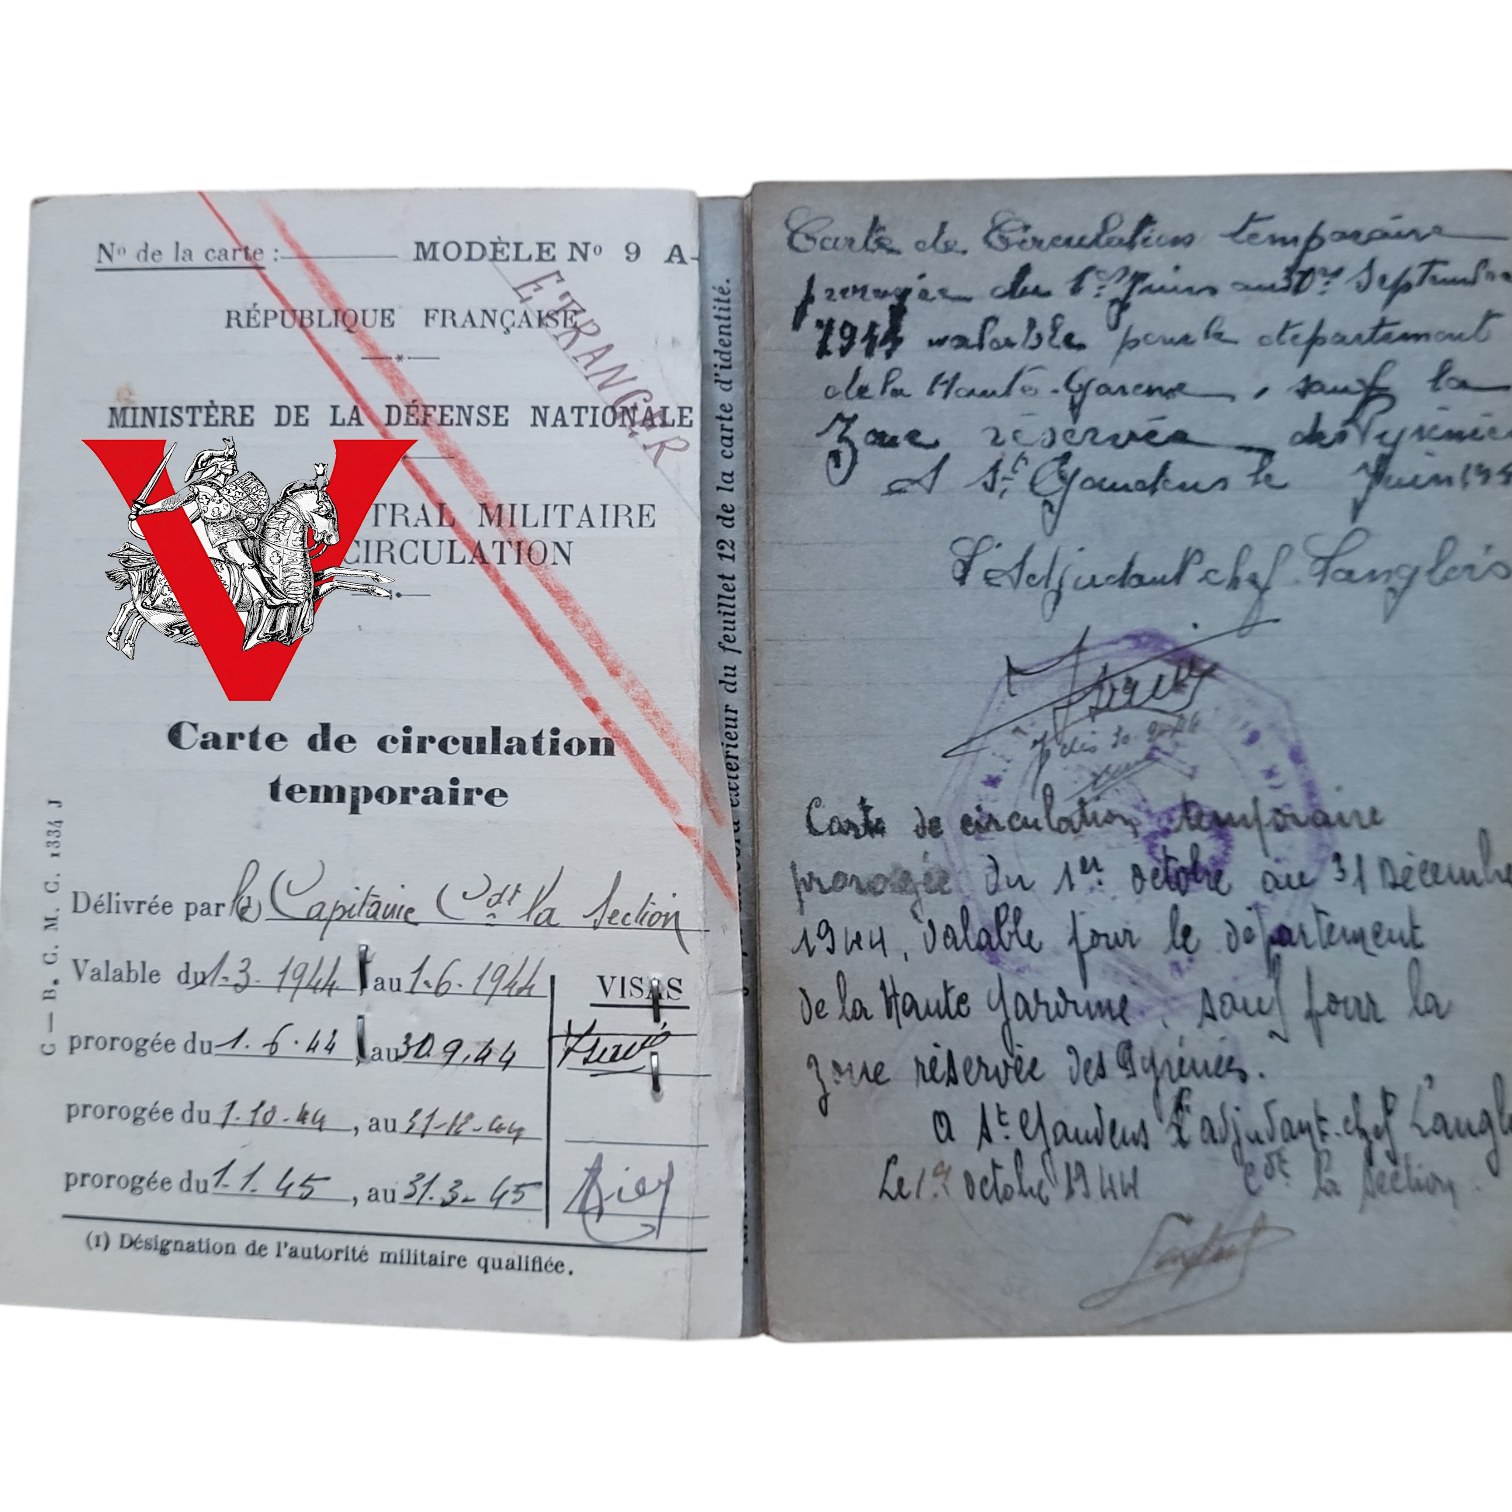 Nº de la carte : MODÈLE Nº 9 A
RÉPUBLIQUE FRANÇAISE
ETRANGER
MINISTÈRE DE LA DÉFENSE NATIONALE
V
TRAL MILITAIRE
CIRCULATION
Carte de circulation
temporaire
Délivrée par le Capitaine Cdt la Section
Valable du 1.3.1944, au 1.6.1944
VISAS
prorogée du 1.6.44, au 30.9.44
prorogée du 1.10.44, au 31-12-44
prorogée du 1.1.45, au 31.3-45
(1) Désignation de l'autorité militaire qualifiée.
G — B. C. G. M. C. 1334 J
extérieur du feuillet 12 de la carte d'identité.
Carte de Circulation temporaire
prorogée du 1er Juin au 30 Septembre
1944 valable pour le département
de la Haute-Garonne, sauf la
Zone réservée des Pyrénées
A St Gaudens le Juin 1944
L'Adjudant chef Langlois
Carte de circulation temporaire
prorogée du 1er octobre au 31 Décembre
1944, valable pour le département
de la Haute Garonne, sauf pour la
zone réservée des Pyrénées.
A St Gaudens L'adjudant-chef Langl
Le 1er octobre 1944 Cdt la section.